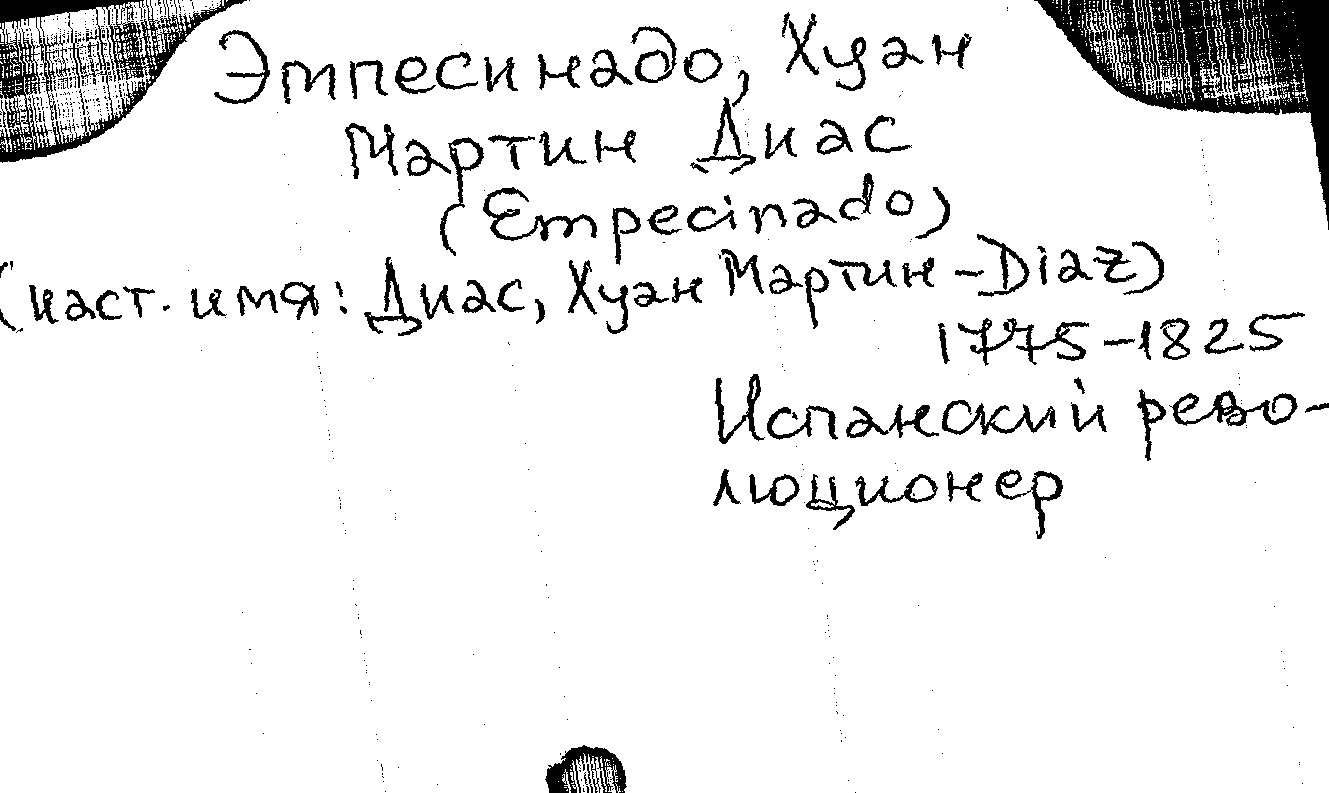 Эмпесинадо, Хуан
Мартин Диас
(Empecinado)
(наст. имя: Диас, Хуан Мартин - Diaz)
1775-1825
Испанский рево-
люционер